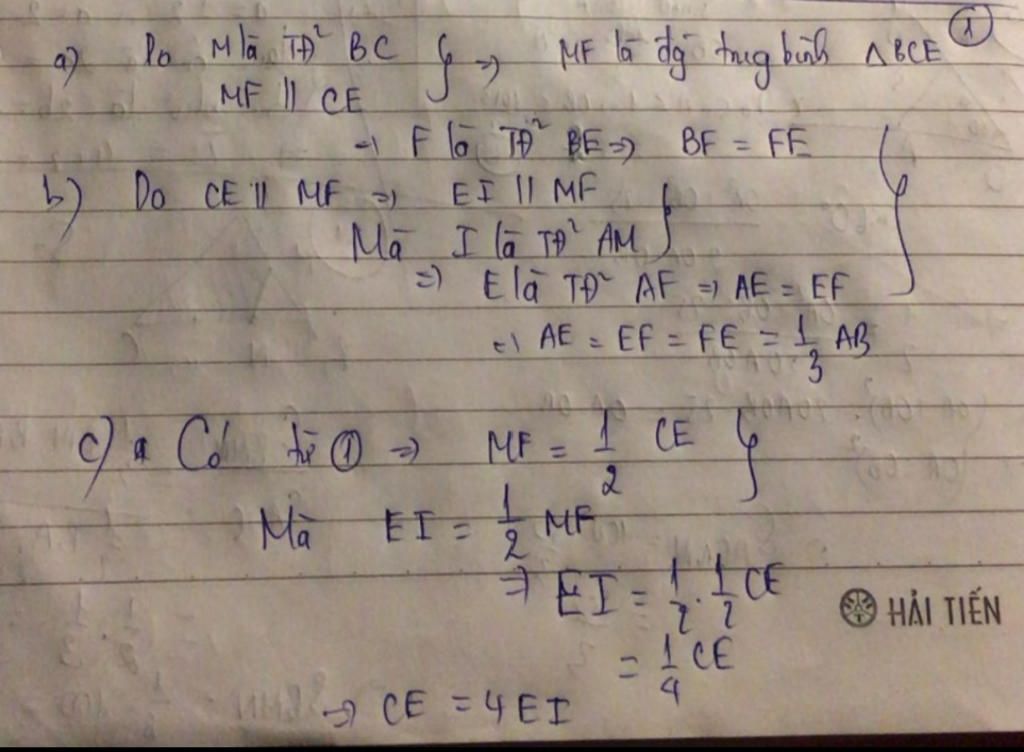 a) Do M là TĐ² BC } => MF là đg trug bình △BCE ①
MF || CE
=> F là TĐ² BE => BF = FE
b) Do CE || MF => EI || MF
Mà I là TĐ² AM
=> E là TĐ² AF => AE = EF
=> AE = EF = FE = 1/3 AB
c) Có từ ① => MF = 1/2 CE
Mà EI = 1/2 MF
=> EI = 1/2 . 1/2 CE
= 1/4 CE
HẢI TIẾN
=> CE = 4EI